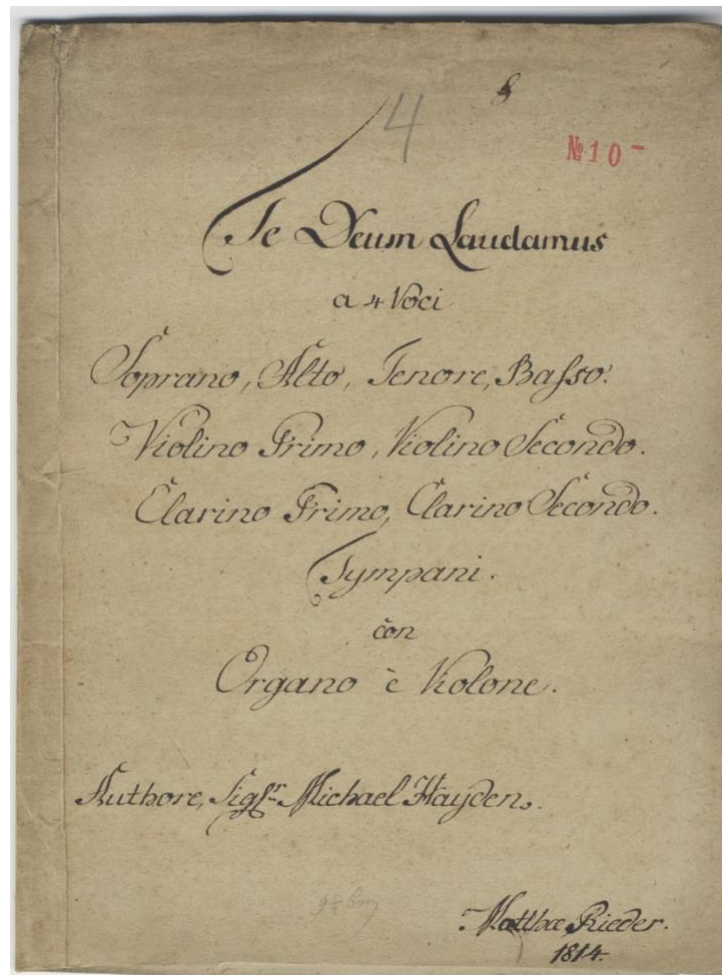 4
№10-
Te Deum Laudamus
a 4 Voci
Soprano, Alto, Tenore, Basso.
Violino Primo, Violino Secondo.
Clarino Primo, Clarino Secondo.
Tympani.
con
Organo è Violone.
Authore, Sigr. Michael Hayden.
Matthæ Rieder.
1814.